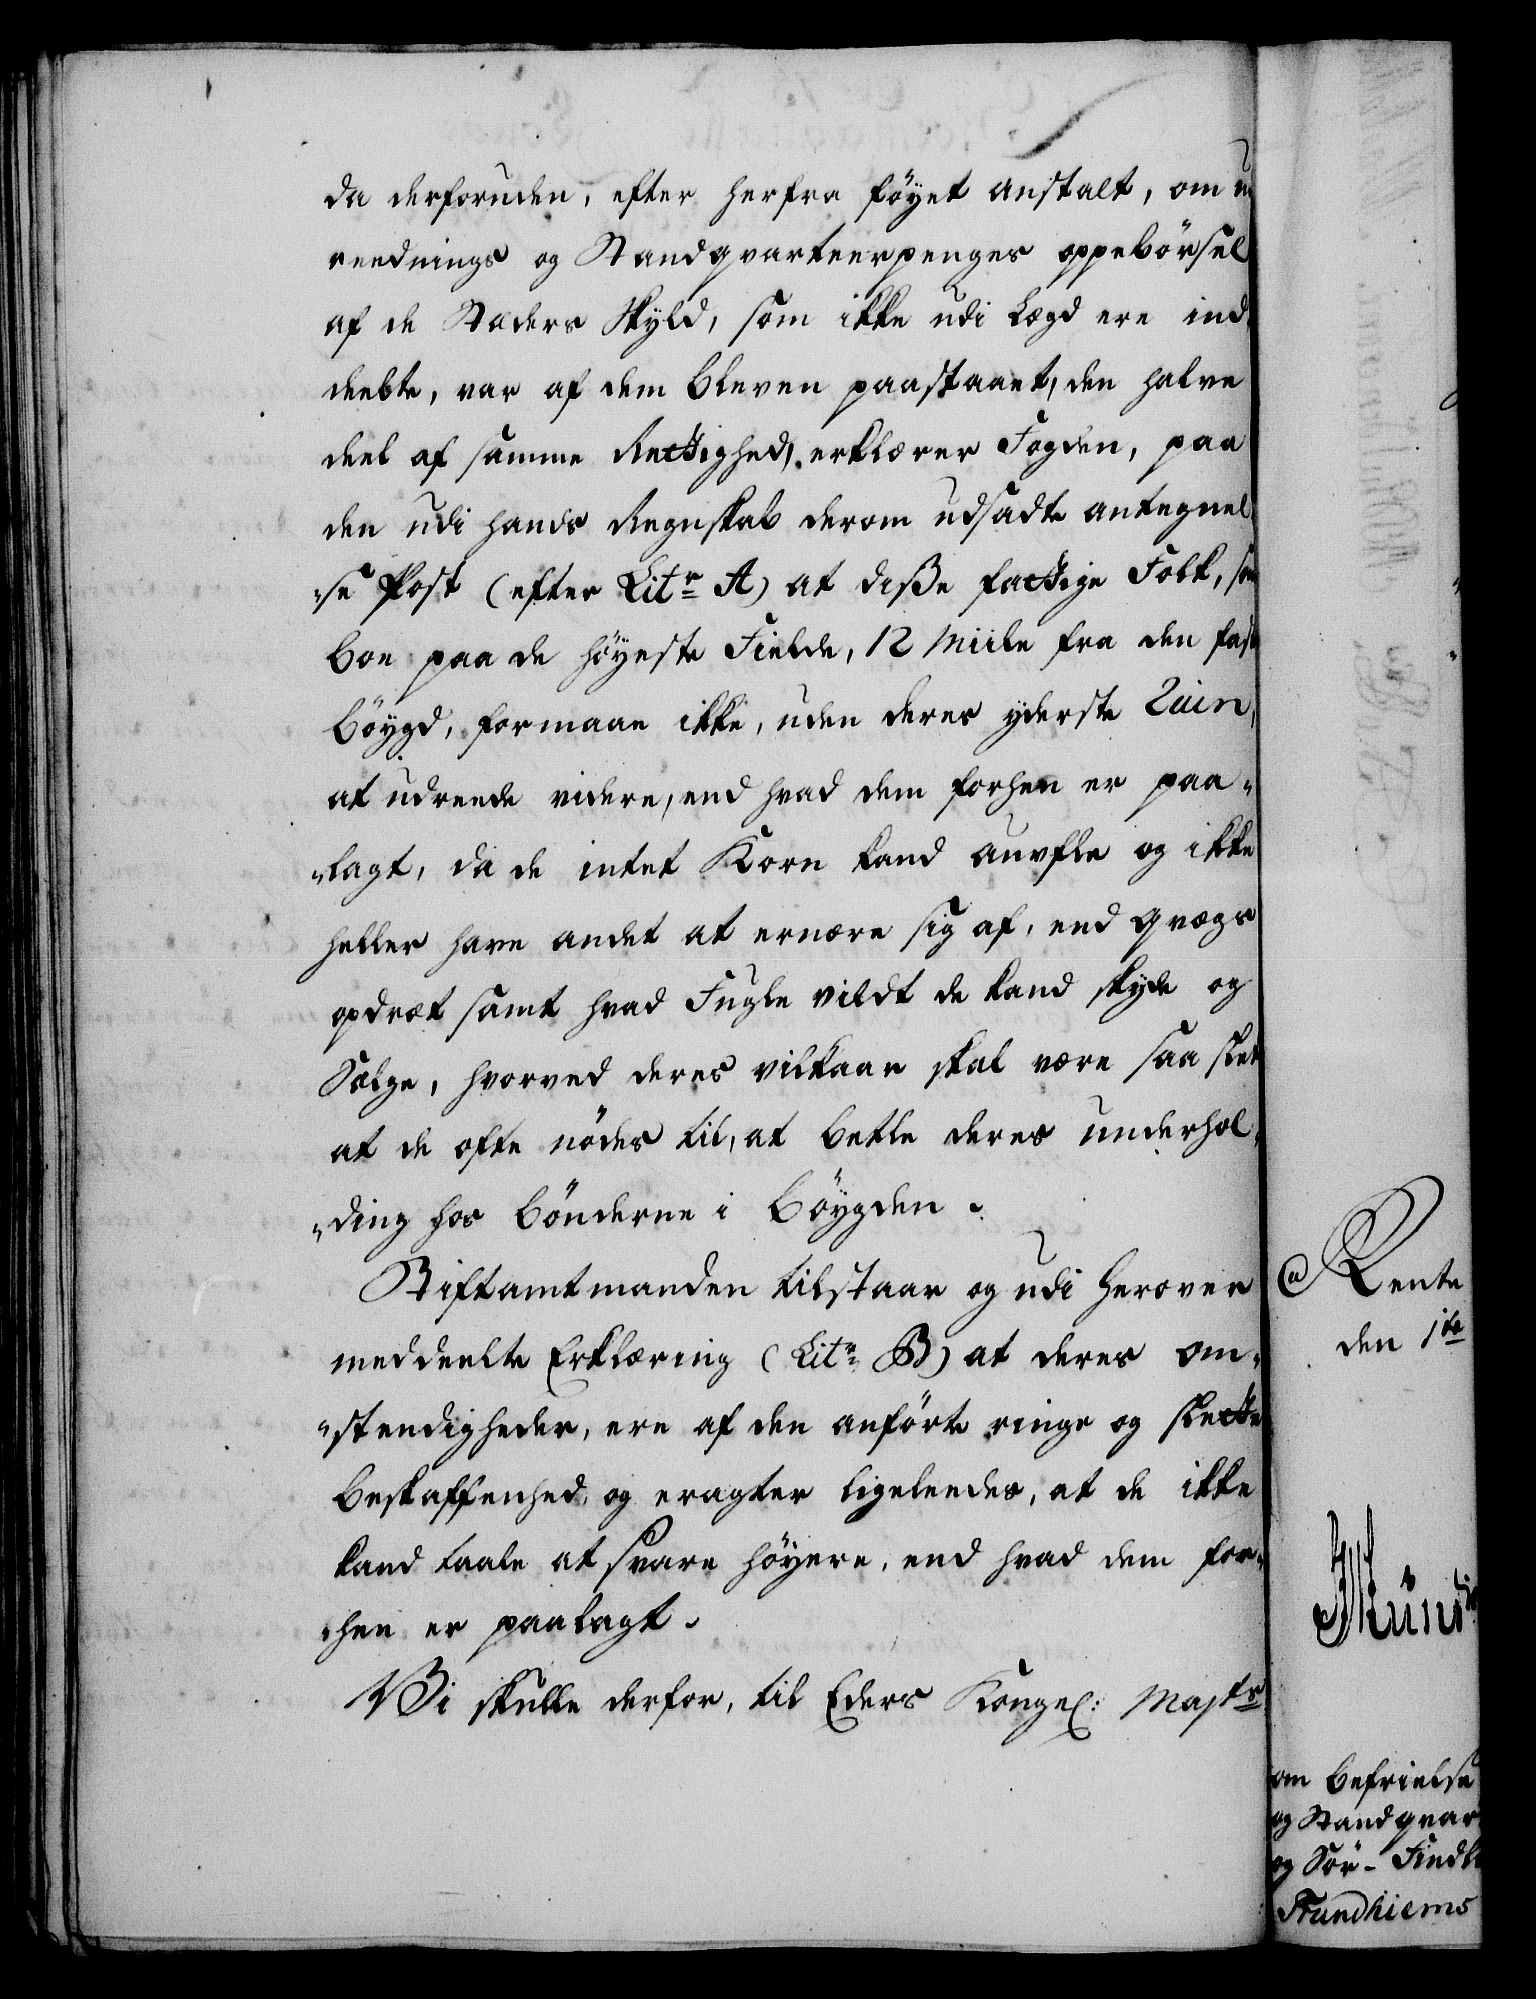 da derforuden, efter herfra föyet anstalt, om u
reednings og Standqvarteerpenges oppebörsel
af de Stæders Skyld, som ikke udi Lægd ere ind,
deelte, var af dem bleven paastaaet, den halve
deel af samme Rettighed, erklærer Fogden, paa
den udi hands Regnskab derom udsadte antegnel,
„se Post (efter Litr A) at diße fattige Folk, som
boe paa de höyeste Fielde, 12 Miile fra den faste
Böygd, formaae ikke, uden deres yderste Ruin,
at udreede videre, end hvad dem forhen er paa„
„lagt, da de intet Korn kand auvfle og ikke
heller have andet at ernære sig af, end qvægs
opdræt samt hvad Fugle vildt de kand skyde og
Sælge, hvorved deres vilkaar skal være saa slet
at de ofte nödes til, at betle deres underhol,
„ding hos bönderne i böygden.
Stiftamtmanden tilstaar og udi herover
meddeelte Erklæring (Litr B) at deres om„
„stendigheder, ere af den anförte ringe og slette
beskaffenhed, og eragter ligeleedes, at de ikke
kand taale at svare höyere, end hvad dem for„
„hen er paalagt.
Vi skulle derfor, til Eders Kongel: Majts
Rente
den 1te
om befrielse
og Standqvar
og Sör- Findl
Trundhiems